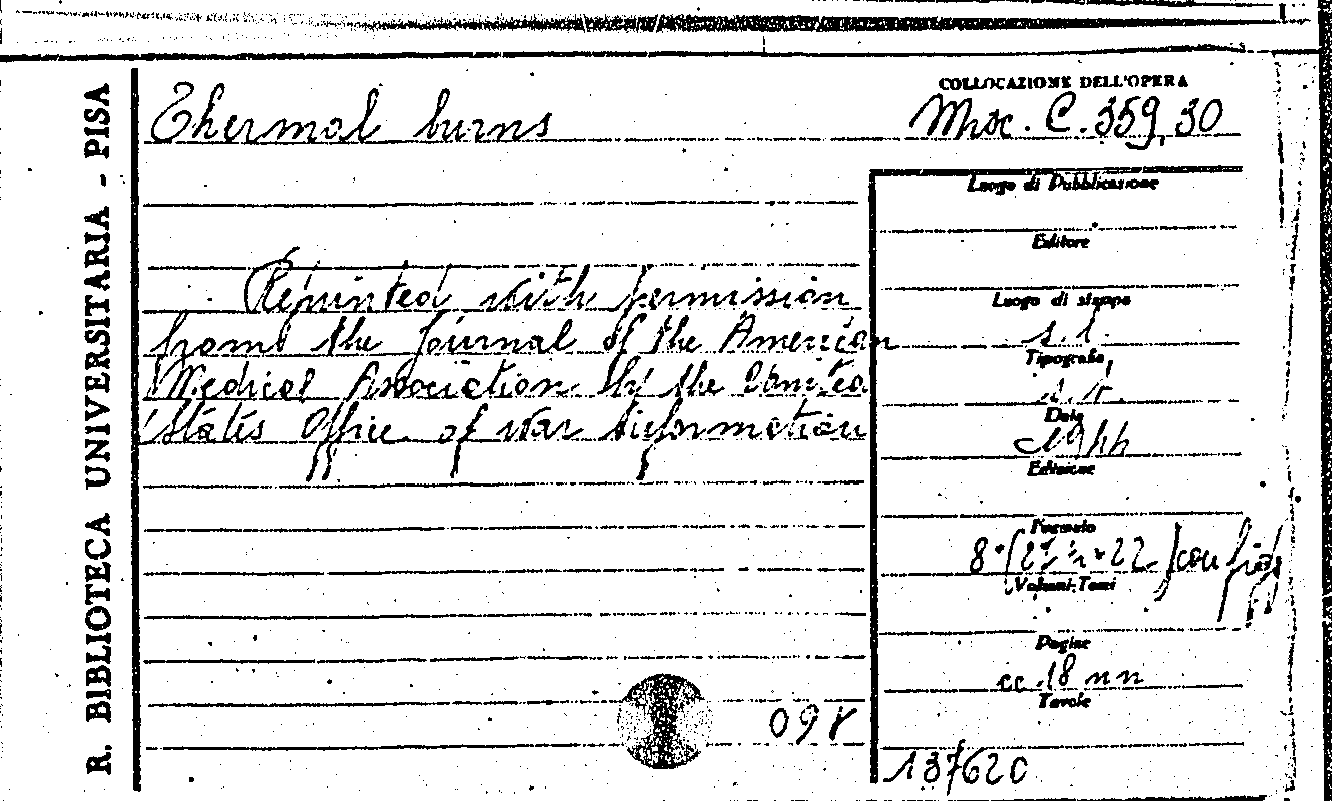 R. BIBLIOTECA UNIVERSITARIA - PISA
Thermal burns
COLLOCAZIONE DELL'OPERA
Misc. C. 359, 30
Reprinted with permission
from the Journal of the American
Medical Association by the United
States Office of War Information
Luogo di Pubblicazione
Editore
Luogo di stampa
s. l.
Tipografo
s. t.
Data
1944
Edizione
Formato
8° con figg
Volumi-Tomi
Pagine
cc. 18 nn
Tavole
137620